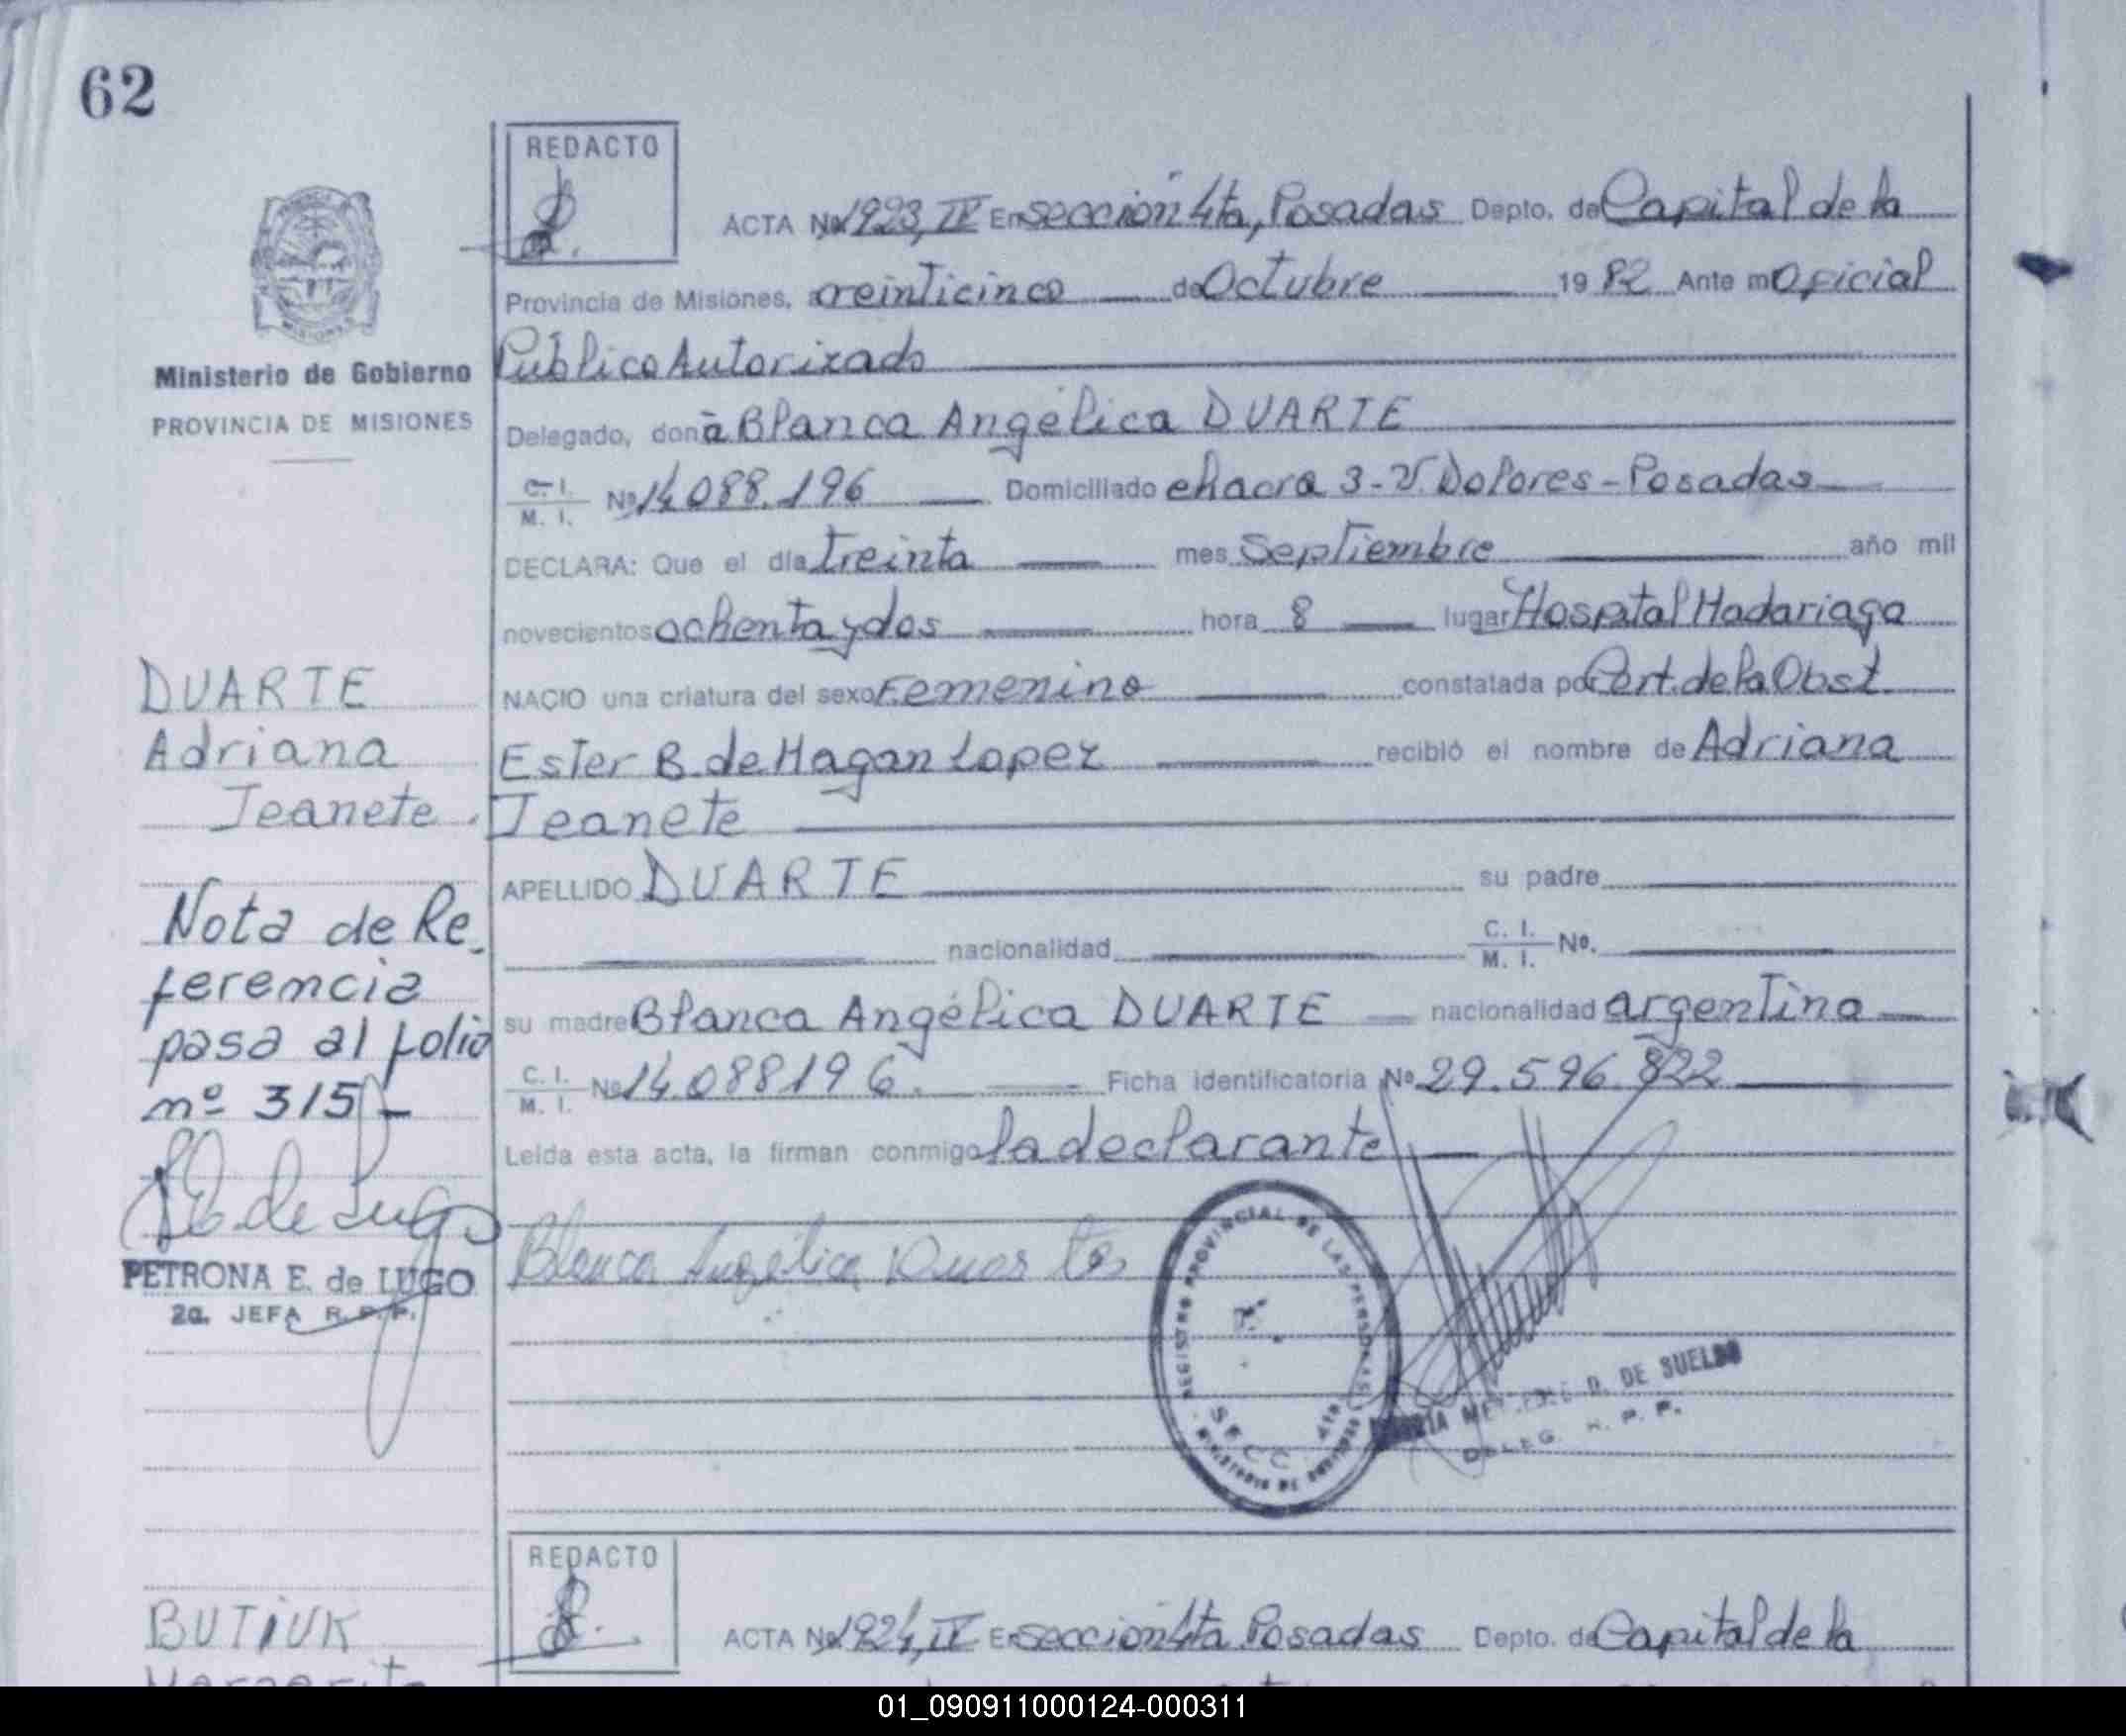 62
REDACTO
ACTA Nº 1923, IV En sección 4ta, Posadas Depto. de Capital de la
Provincia de Misiones, a veinticinco de Octubre 1982 Ante mí Oficial
Público Autorizado
Ministerio de Gobierno
PROVINCIA DE MISIONES
Delegado, doña Blanca Angélica DUARTE
C. I.
M. I. Nº 14.088.196 Domiciliado chacra 3-V. Dolores-Posadas
DECLARA: Que el día treinta mes Septiembre año mil
novecientos ochenta y dos hora 8 lugar Hospital Madariaga
NACIO una criatura del sexo Femenino constatada por Cert. de la Obst.
Ester B. de Hagan Lopez recibió el nombre de Adriana
Jeanete
APELLIDO DUARTE su padre
nacionalidad C. I.
M. I. Nº.
su madre Blanca Angélica DUARTE nacionalidad argentina
C. I.
M. I. Nº 14.088196. Ficha identificatoria Nº 29.596.822
Leída esta acta, la firman conmigo la declarante
Blanca Angélica Duarte
DUARTE
Adriana
Jeanete.
Nota de Re-
ferencia
pasa al folio
nº 315-
E. de Lugo
PETRONA E. de LUGO
2a. JEFA R. P. P.
REGISTRO PROVINCIAL DE LAS PERSONAS
SECC 4ta
MINISTERIO DE GOBIERNO
MARIA D. DE SUELDO
DELEG. R. P. P.
REDACTO
BUTIUK
Margarita
ACTA Nº 1924, IV En sección 4ta Posadas Depto. de Capital de la
01_090911000124-000311